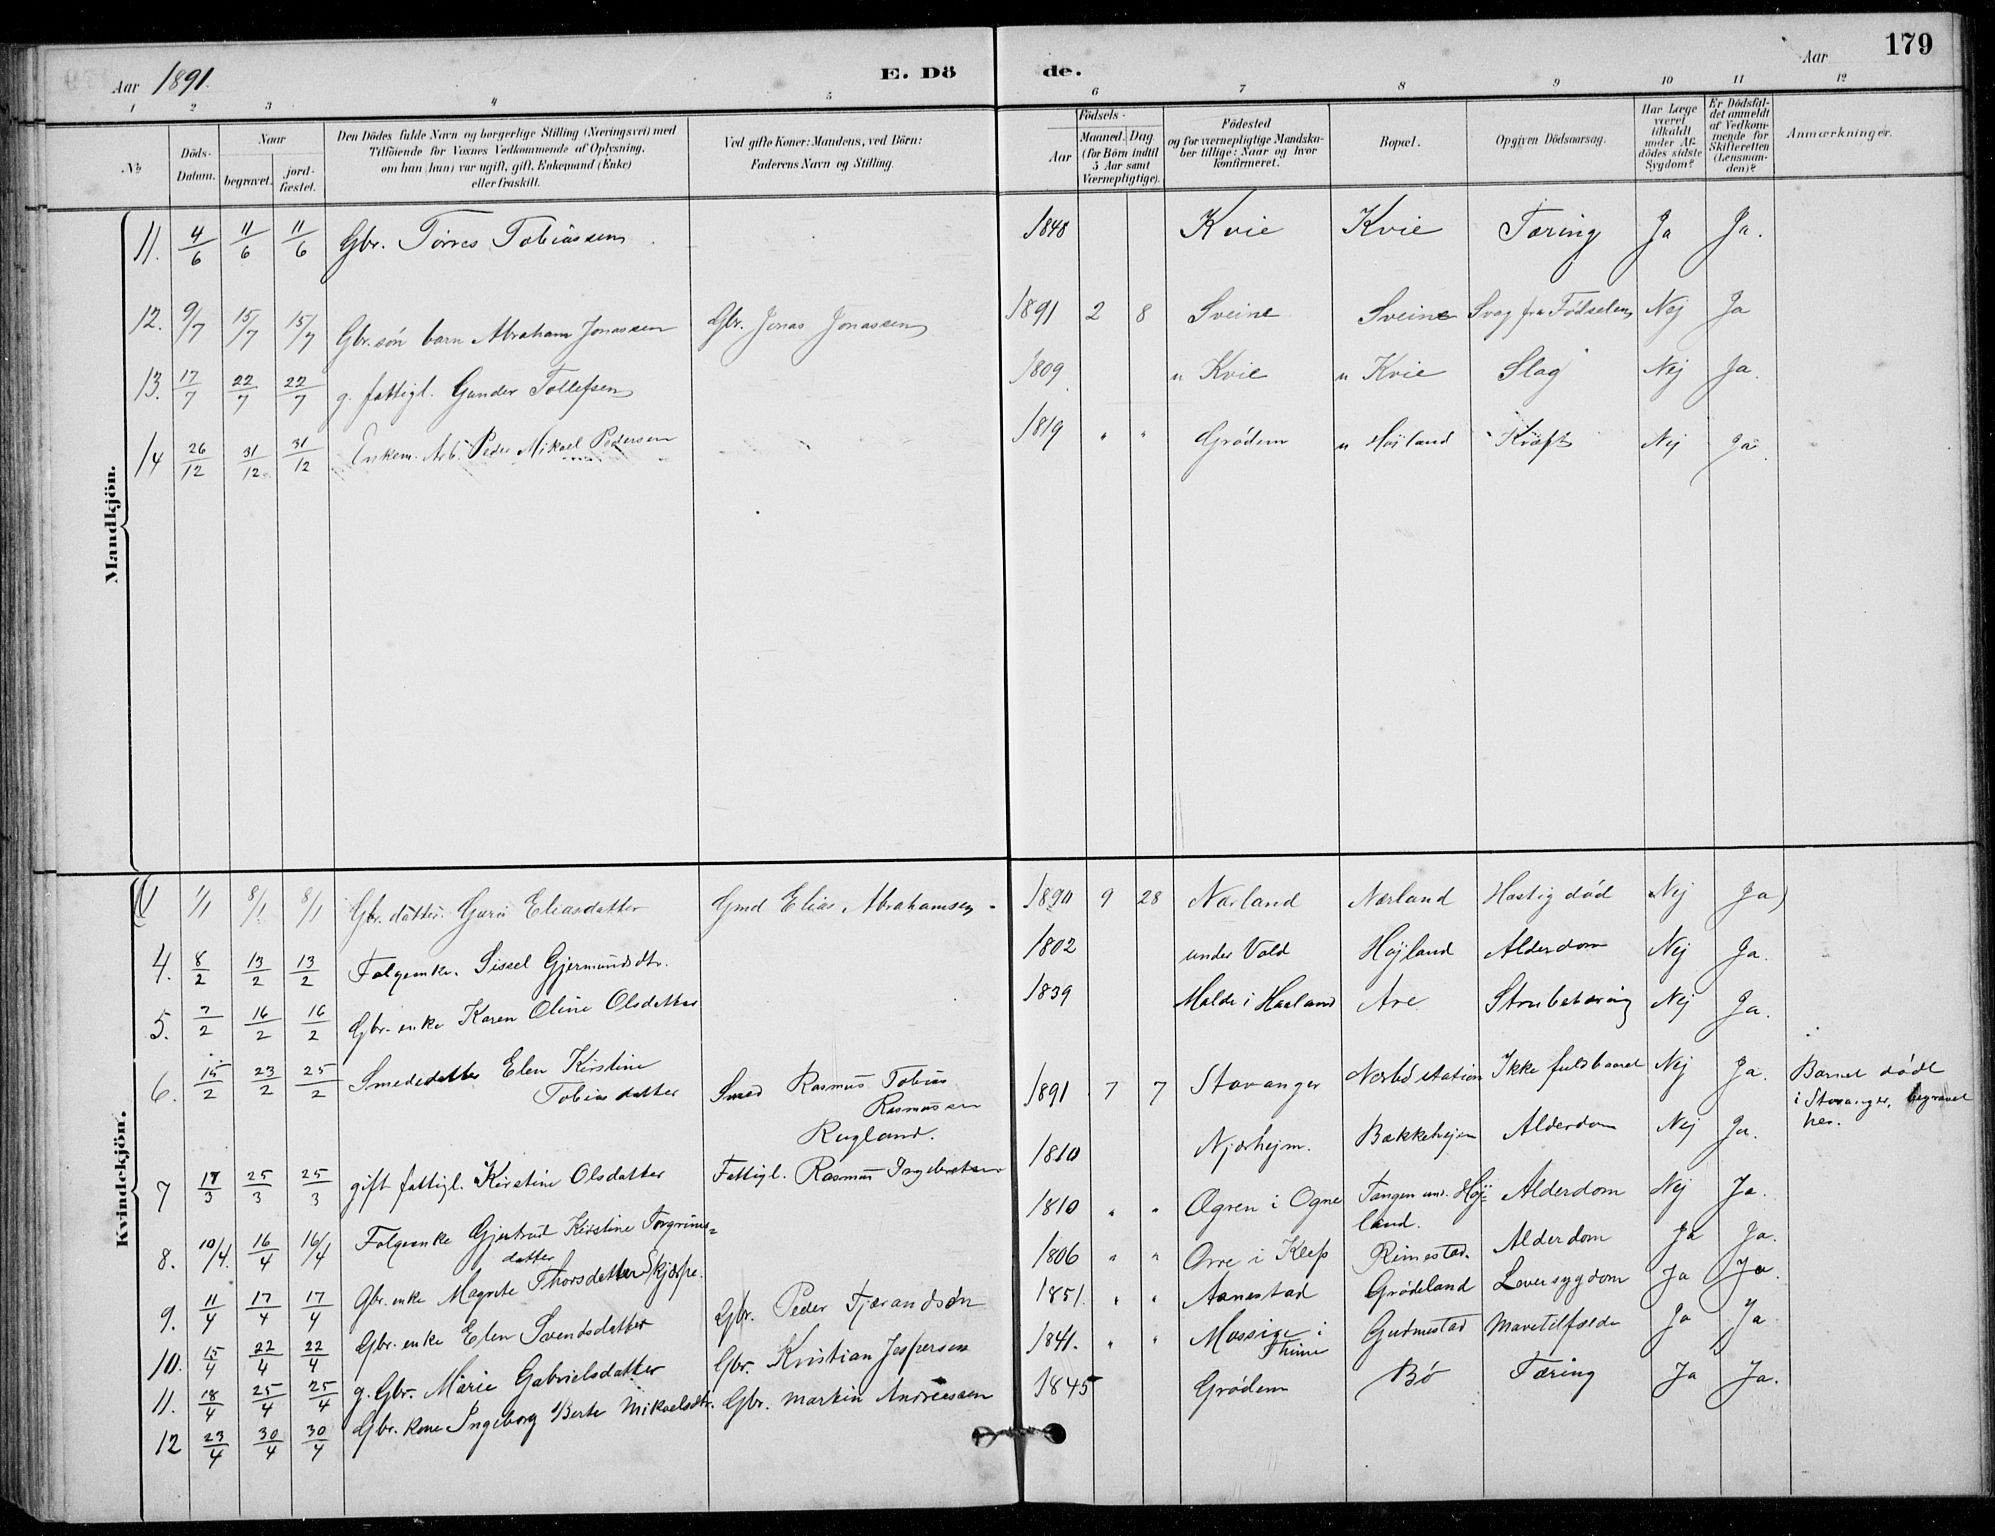 Aar 1891.
E. Dö de.
Aar 179
1 2 3 4 5 6 7 8 9 10 11 12
No
Döds-Datum.
Naar
begravet.
jord-fæstet.
Den Dödes fulde Navn og borgerlige Stilling (Næringsvei) med
Tilföiende for Voxnes Vedkommende af Oplysning,
om han (hun) var ugift, gift, Enkemand (Enke)
eller fraskilt.
Ved gifte Koner: Mandens, ved Börn:
Faderens Navn og Stilling.
Födsels-
Aar
Maaned. Dag
(for Börn indtil
5 Aar samt
Værnepligtige).
Födested
og for værnepligtige Mandska-
ber tillige: Naar og hvor
konfirmeret.
Bopæl.
Opgiven Dödsaarsag.
Har Læge
været
tilkaldt
under Af-
dödes sidste
Sygdom?
Er Dödsfal-
det anmeldt
af Vedkom-
mende for
Skifteretten
(Lensman-
den)?
Anmærkninger.
Mandkjön.
11. 4/6 11/6 11/6 Gbr. Törres Tobiassen 1848 Kvie Kvie Tæring Ja Ja.
12. 9/7 15/7 15/7 Gbr. søn barn Abraham Jonassen Gbr. Jonas Jonassen 1891 2 8 Sveine Sveine Svag fra Fødselen Nej Ja
13. 17/7 22/7 22/7 g. fattigl. Gunder Tollefsen 1809 u Kvie u Kvie Slag Nej Ja.
14 26/12 31/12 31/12 Enkem. Arb. Peder Mikael Pedersen 1819 " " Grødem u Høiland Kræft Nej Ja.
Kvindekjön.
1/1 8/1 8/1 Gbr. datter Guri Eliasdatter Gmd Elias Abrahamsen 1890 9 28 Nærland Nærland Hastig død Nej Ja)
4. 8/2 13/2 13/2 Folgeenke. Sissel Gjermundsdtr. 1802 under Vold Højland Alderdom Nej Ja.
5. 7/2 16/2 16/2 Gbr. enke Karen Oline Olsdatter 1839 Malde i Haaland Are Strubetæring Nej Ja.
6. 15/2 23/2 25/2 Smededatter Elen Kirstine
Tobiasdatter Smed Rasmus Tobias
Rasmussen
Rugland. 1891 7 7 Stavanger Nærbø station Ikke fuldbaaret Nej Ja. Barnet døde
i Stavanger, begravet
her.
7 18/3 25/3 25/3 gift fattigl. Kirstine Olsdatter Fattigl. Rasmus Ingebretsen 1810 Njærhejm. Bækkehejen Alderdom Nej Ja.
8. 10/4. 16/4 16/4 Folgeenke Gjertrud Kirstine Torgrims=
datter 1810 " " Ægren i Ogne Tangen und. Høj=
land. Alderdom Nej Ja.
9. 11/4 17/4 17/4 Gbr. enke Magrete Thorsdatter Skjærpe. 1806 " " Orre i Klep Rimestad. Alderdom Ja Ja.
10. 15/4 22/4 22/4 Gbr. enke Elen Svendsdatter Gbr. Peder Tjerandsøn 1851. " " Aanestad Grødeland Leversygdom Ja Ja.
11. 18/4 25/4 25/4 g. Gbr. Marie Gabrielsdatter Gbr. Kristian Jespersen 1841. " " Mossige i
Thime Gudmestad Mavetilfælde Ja Ja.
12 23/4 30/4 30/4 Gbr. kone Ingeborg Berte Mikaelsdtr. Gbr. Martin Andreassen 1845 Grødem Bø Tæring Ja Ja.